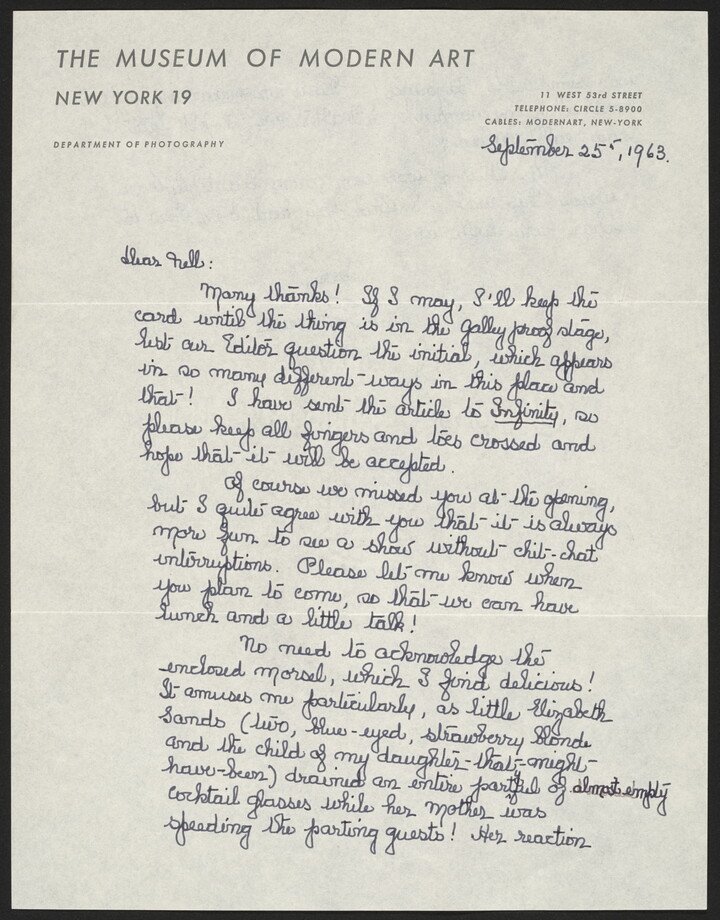 THE MUSEUM OF MODERN ART
NEW YORK 19
11 WEST 53rd STREET
TELEPHONE: CIRCLE 5-8900
CABLES: MODERNART, NEW-YORK
DEPARTMENT OF PHOTOGRAPHY
September 25th, 1963.
Dear Nell:
Many thanks! If I may, I'll keep the
card until the thing is in the galley proof stage,
lest our Editor question the initial, which appears
in so many different ways in this place and
that! I have sent the article to Infinity, so
please keep all fingers and toes crossed and
hope that it will be accepted.
Of course we missed you at the opening,
but I quite agree with you that it is always
more fun to see a show without chit-chat
interruptions. Please let me know when
you plan to come, so that we can have
lunch and a little talk!
No need to acknowledge the
enclosed morsel, which I find delicious!
It amuses me particularly, as little Elizabeth
Sands (two, blue-eyed, strawberry blonde
and the child of my daughter-that-might-
have-been) drained an entire partyful of almost empty
cocktail glasses while her mother was
speeding the parting guests! Her reaction